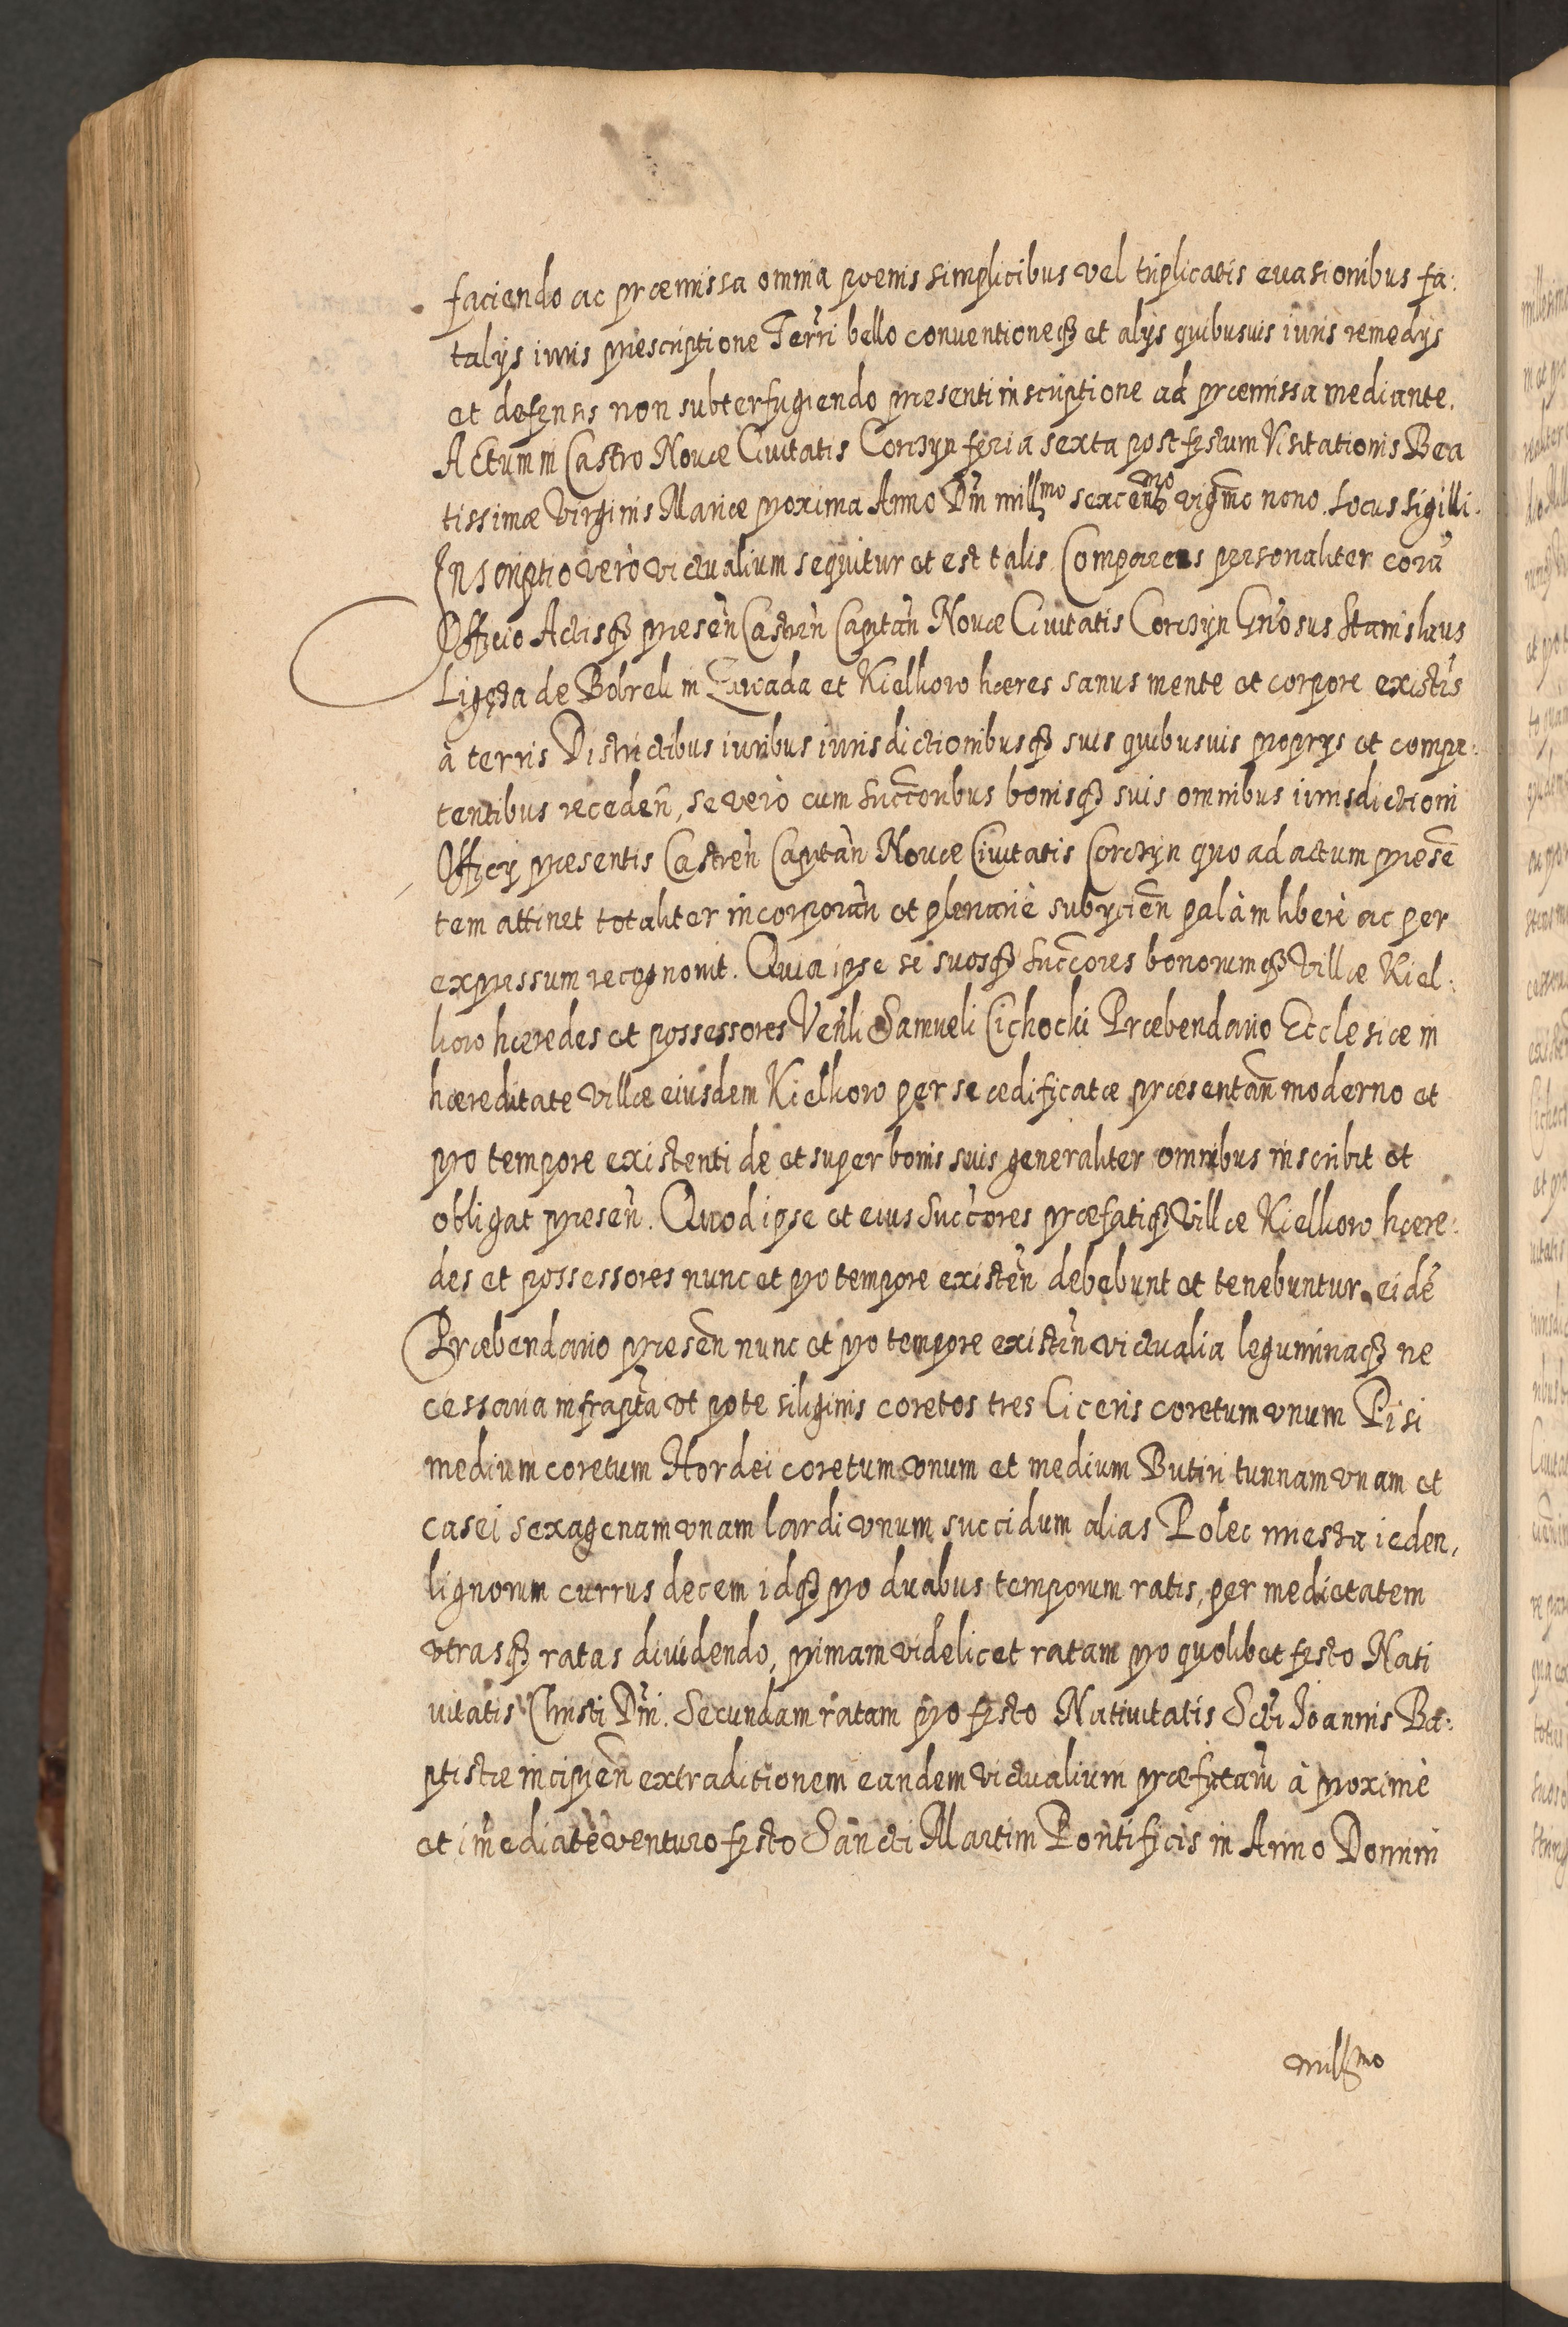 faciendo ac præmissa omnia poenis simplicibus vel triplicatis euasionibus fa:
talys iuris præscriptione Terri bello conuentioneq3 et alys quibusuis iuris remedys
et defensis non subterfugiendo præsenti inscriptione ad præmissa mediante.
Actum in Castro Nouæ Ciuitatis Corczyn feria sexta post festum Visitationis Bea
tissimæ Virginis Mariæ proxima Anno Dni millmo sexcenmo vigmo nono. Locus Sigilli.
Inscriptio verò victualium sequitur et est talis. Comparens personaliter corā
Officio Actisq3 præsen̄ Castren̄ Capitan̄ Nouæ Ciuitatis Corczyn Gn̄osus Stanislaus
Ligęza de Bobrek in et Kielkow hæres sanus mente et corpore existn̄s
à terris Districtibus iuribus iurisdictionibusq3 suis quibusuis proprys et compe:
tentibus receden̄, se verò cum Succ̄oribus bonisq3 suis omnibus iurisdictioni
Officij præsentis Castren̄ Capitan̄ Nouæ Ciuitatis Corczyn quo ad actum præsen̄
tem attinet totaliter incorporan̄ et plenariè subycien̄ palàm liberè ac per
expressum recognouit. Quia ipse se suosq3 Succ̄ores bonorumq3 Villæ Kiel:
kow hæredes et possessores Ven̄li Samueli Cichocki Præbendario Ecclesiæ in
hæreditate villæ eiusdem Kielkow per se ædificatæ præsentan̄ moderno et
pro tempore existenti de et super bonis suis generaliter omnibus inscribit et
obligat præsen̄. Quod ipse et eius Succ̄ores præfatiq3 Villæ Kielkow hære:
des et possessores nunc et pro tempore existen̄ debebunt et tenebuntur eidē
Præbendario præsen̄ nunc et pro tempore existen̄ victualia leguminaq3 ne
cessaria infrapt̄a vt pote siliginis coretos tres Ciceris coretum vnum Pisi
medium coretum Hordei coretum vnum et medium Butiri tunnam vnam et
casei sexagenam vnam lardi vnum succidum alias Połec mięsza ieden,
lignorum currus decem idq3 pro duabus temporum ratis, per medietatem
vtrasq3 ratas diuidendo, primam videlicet ratam pro quolibet festo Nati
uitatis Christi Dn̄i. Secundam ratam pro festo Natiuitatis Scti Joannis Ba:
ptistæ incipien̄ extraditionem eandem victualium præfatam̄ à proximè
et im̄ediatè venturo festo Sancti Martini Pontificis in Anno Domini
millmo